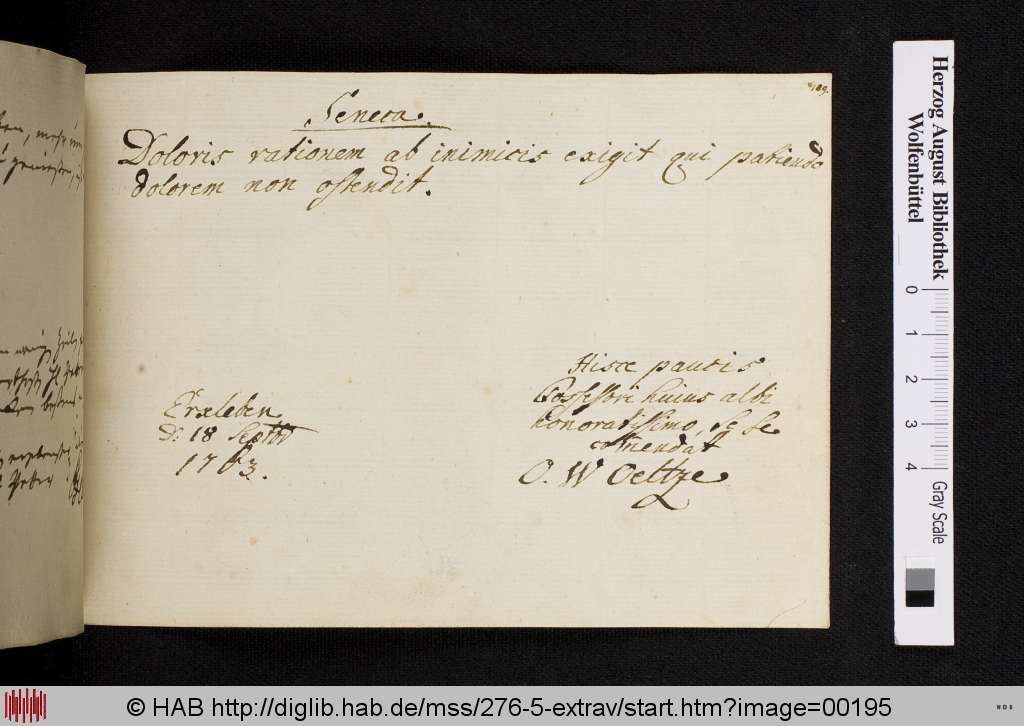 189.
Seneca.
Doloris rationem ab inimicis exigit qui patiendo
dolorem non ostendit.
Hisce paucis
Possessori huius albi
honoratissimo, se se
commendat
O. W Oeltze
Erxleben
D: 18 Septbr
1763.
Herzog August Bibliothek
Wolfenbüttel
0 1 2 3 4
Gray Scale
© HAB http://diglib.hab.de/mss/276-5-extrav/start.htm?image=00195
WDB